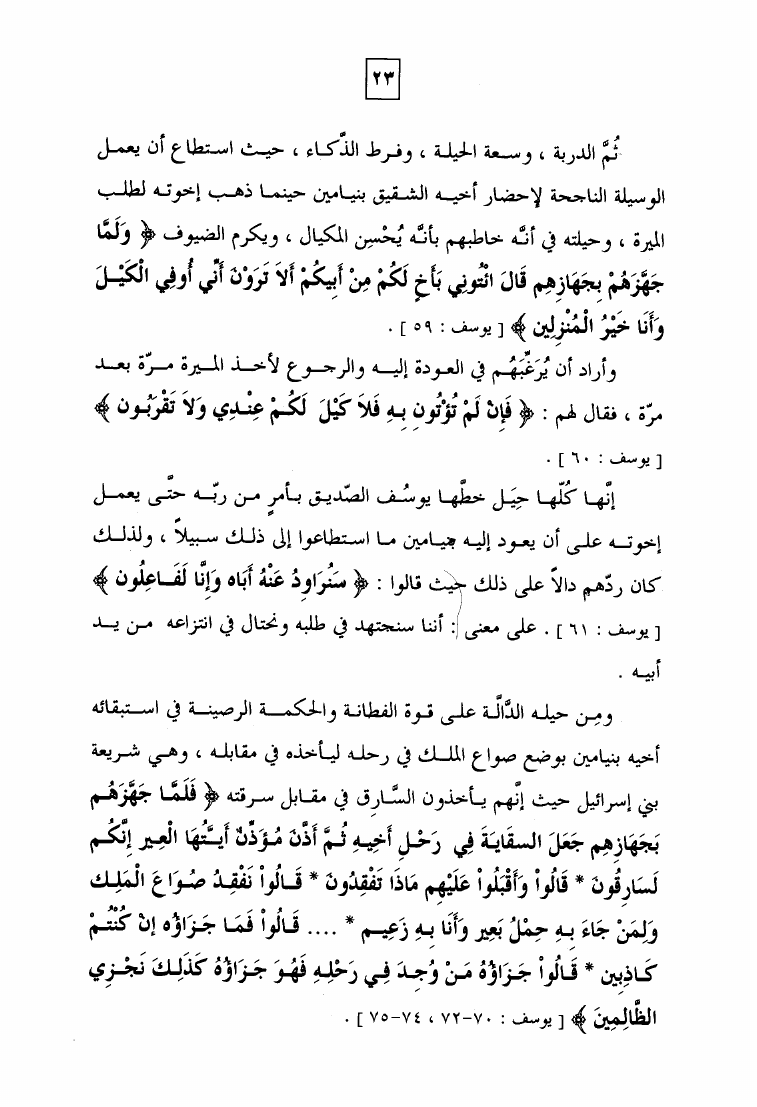 ٢٣
ثُمَّ الدربة ، وسعة الحيلة ، وفرط الذَّكاء ، حيث استطاع أن يعمل
الوسيلة الناجحة لإحضار أخيه الشقيق بنيامين حينما ذهب إخوته لطلب
الميرة ، وحيلته في أنَّه خاطبهم بأنَّه يُحْسِن المكيال ، ويكرم الضيوف ﴿ وَلَمَّا
جَهَّزَهُمْ بِجَهَازِهِم قَالَ ائْتُونِي بَأَخٍ لَكُمْ مِنْ أَبِيكُمْ أَلاَ تَرَوْنَ أَنِّي أُوفِي الْكَيْلَ
وَأَنَا خَيْرُ الْمُنْزِلِين ﴾ [ يوسف : ٥٩ ] .
وأراد أن يُرَغِّبَهُم في العودة إليه والرجوع لأخذ الميرة مرّة بعد
مرّة ، فقال لهم : ﴿ فَإِنْ لَمْ تُؤْتُونِ بِهِ فَلاَ كَيْلَ لَكُمْ عِنْدِي وَلاَ تَقْرَبُون ﴾
[ يوسف : ٦٠ ] .
إنَّها كُلّها حِيَل خطَّها يوسُف الصّديق بأمرٍ من ربّه حتَّى يعمل
إخوته على أن يعود إليه بنيامين ما استطاعوا إلى ذلك سبيلاً ، ولذلك
كان ردّهم دالاً على ذلك حيث قالوا : ﴿ سَنُرَاوِدُ عَنْهُ أَبَاه وَإِنَّا لَفَاعِلُون ﴾
[ يوسف : ٦١ ] . على معنى : أننا سنجتهد في طلبه ونحتال في انتزاعه من يد
أبيه .
ومِن حيله الدَّالّة على قوة الفطانة والحكمة الرصينة في استبقائه
أخيه بنيامين بوضع صواع الملك في رحله ليأخذه في مقابله ، وهي شريعة
بني إسرائيل حيث إنَّهم يأخذون السَّارق في مقابل سرقته ﴿ فَلَمَّا جَهَّزَهُم
بِجَهَازِهِم جَعَلَ السقَايَةَ فِي رَحْلِ أَخِيهِ ثُمَّ أَذَّنَ مُؤَذِّنٌ أَيَّتُهَا الْعِير إِنَّكُم
لَسَارِقُونَ * قَالُواْ وَأَقْبَلُواْ عَلَيْهِم مَاذَا تَفْقِدُونَ * قَالُواْ نَفْقِدُ صُوَاعَ الْمَلِك
وَلِمَنْ جَاءَ بِهِ حِمْلُ بَعِير وَأَنَا بِهِ زَعِيم * .... قَالُواْ فَمَا جَزَاؤُه إِنْ كُنْتُمْ
كَاذِبِين * قَالُواْ جَزَاؤُهُ مَنْ وُجِدَ فِي رَحْلِهِ فَهُوَ جَزَاؤُهُ كَذَلِكَ نَجْزِي
الظَّالِمِينَ ﴾ [ يوسف : ٧٠-٧٢ ، ٧٤-٧٥ ] .